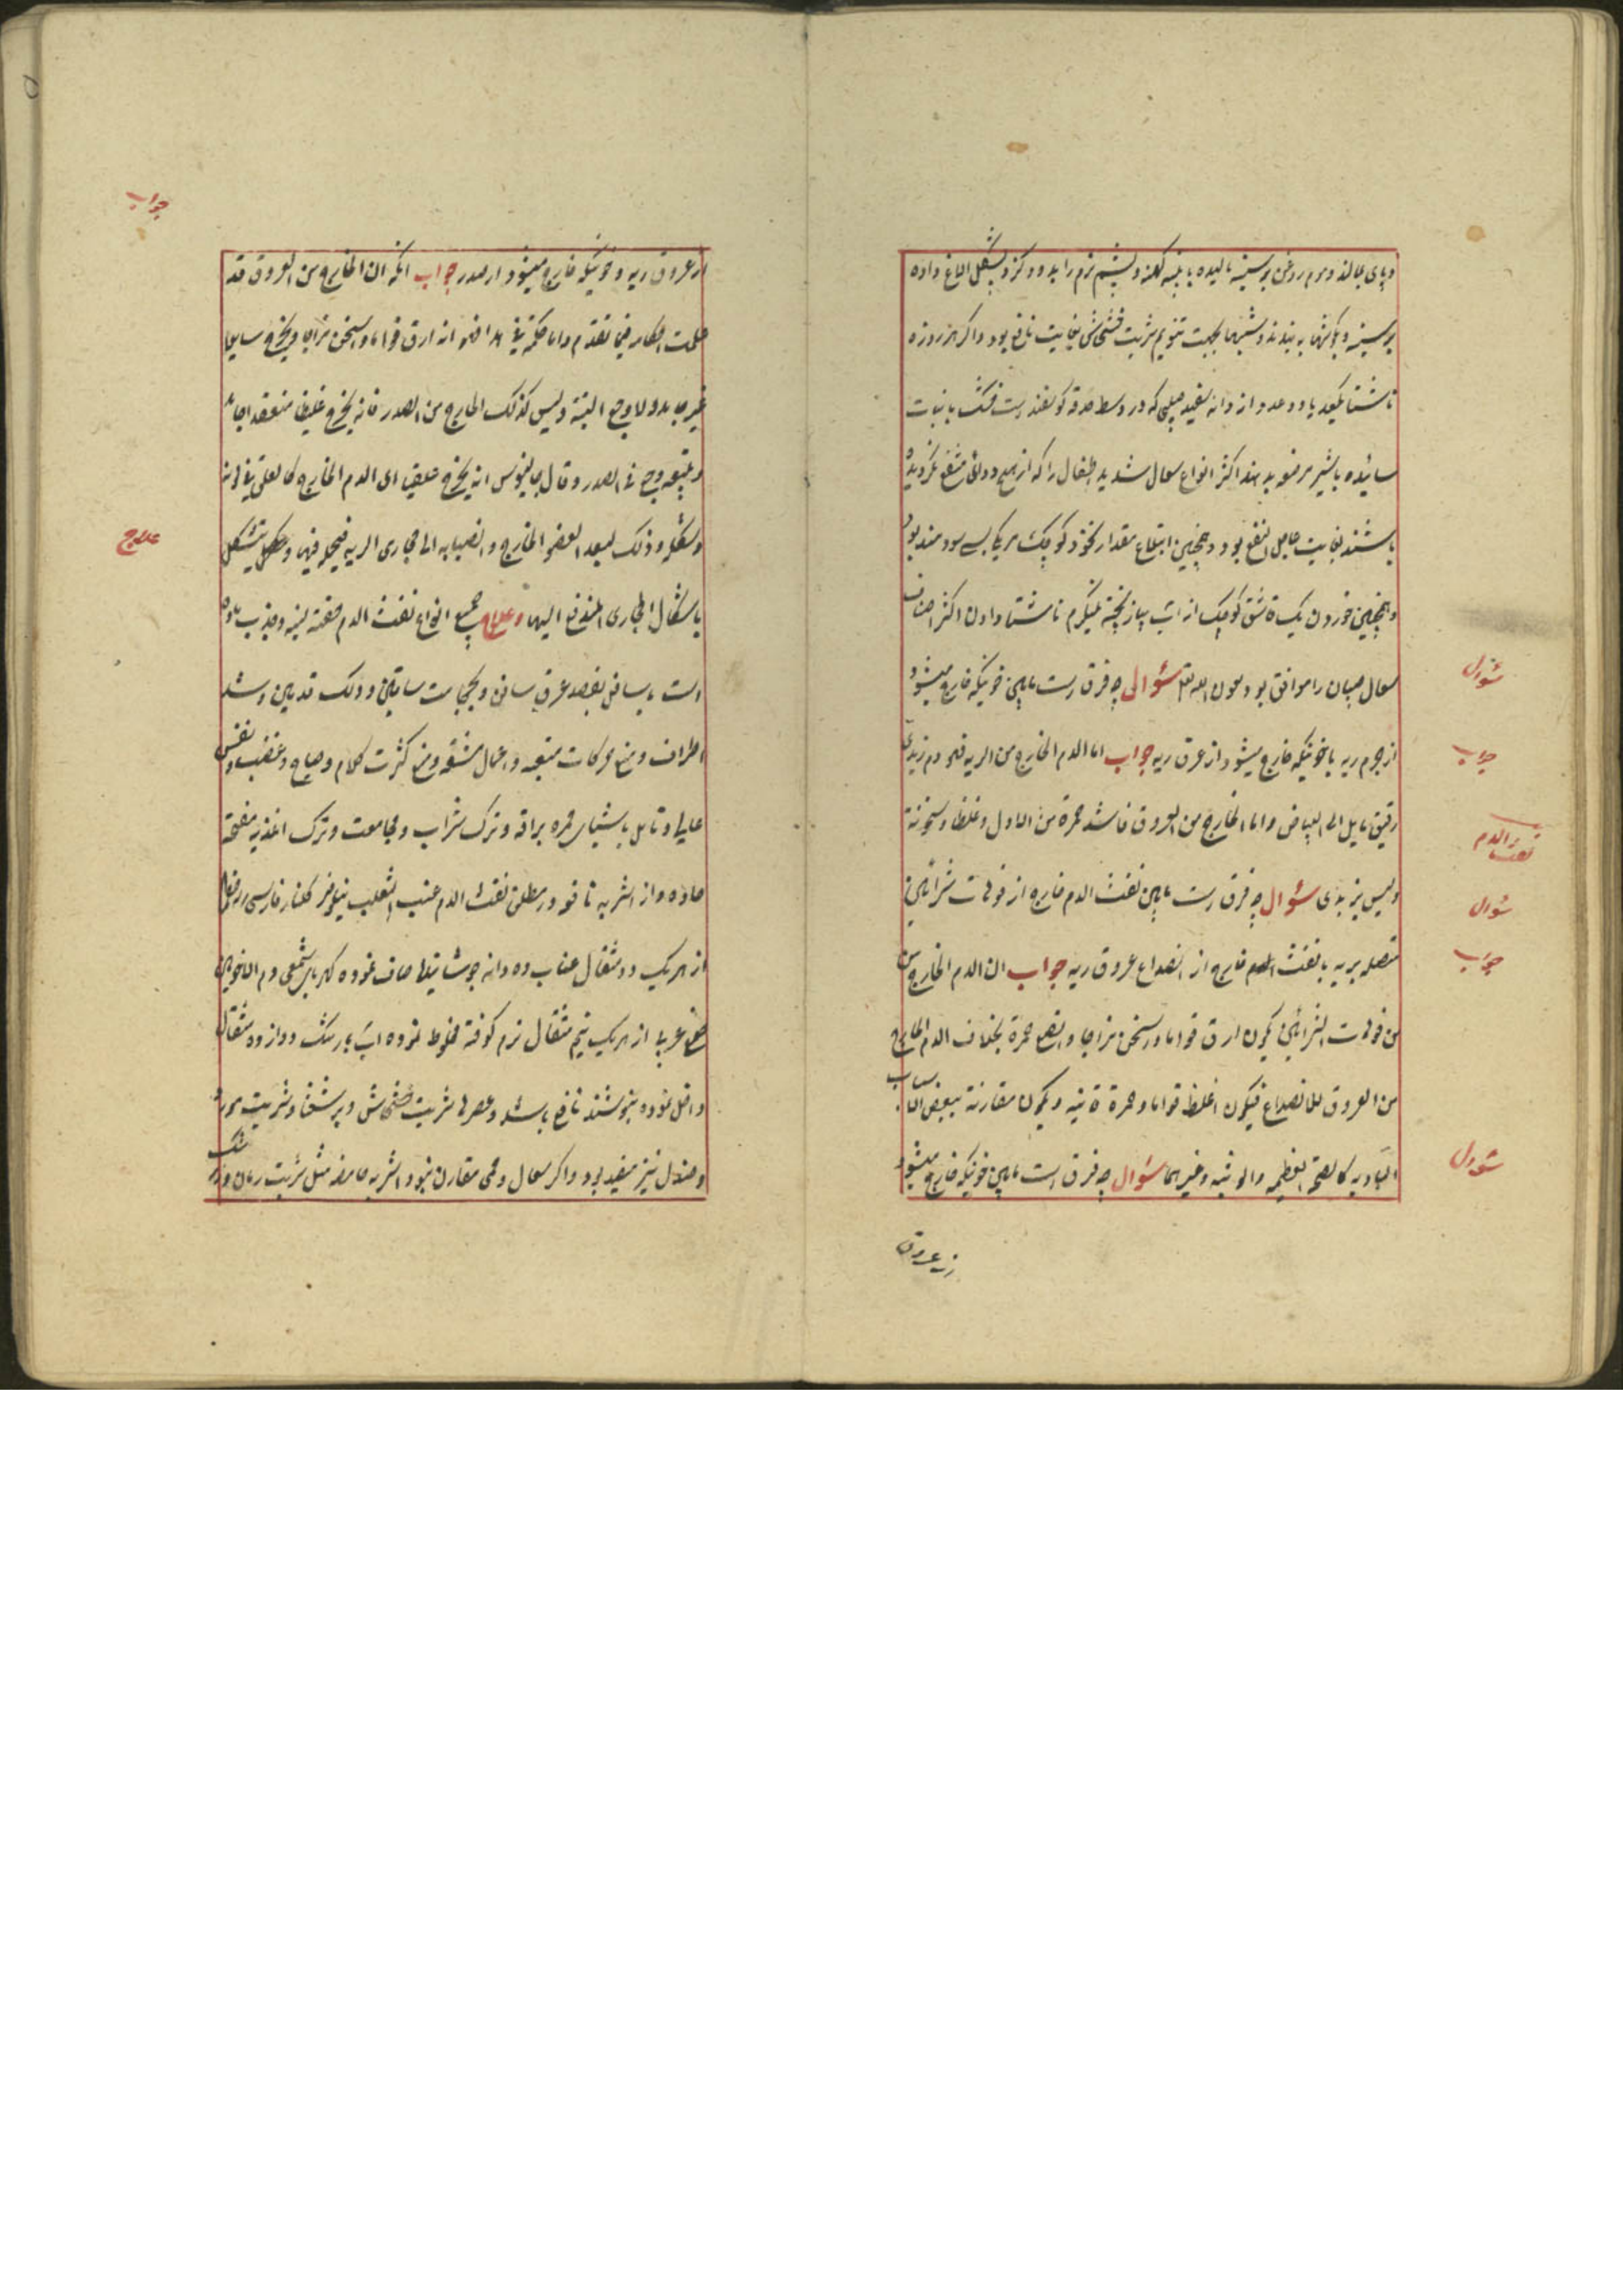 وپای بمالند وموم روغن بر سینه مالیده با پنبه کهنه و پشم نرم را بدود کز و بشکل الباغ داده
بر سینه و پهلوها به بندند و شبها بجهت تنویم شربت خشخاش بغایت نافع بود و اگر هر روزه
ناشتا یکعدد یا دو عدد از دانه سفید که در وسط صدقه کوهند است با نبات
سائیده با شیر مرضعه بدهند اکثر انواع سعال شدید اطفال را که از هیچ دوائی منتفع نگردیده
باشند بغایت عاجل النفع بود و همچنین ابتلاع مقدار نخود کوچک سودمند بود
و همچنین خوردن یک قاشق کوچک از آب پیاز پخته نیمگرم ناشتا دادن اکثر اصناف
سعال صبیان را موافق بود بعون الله تعالی سؤال چه فرق است مابین خونیکه خارج میشود
از جرم ریه با خونیکه خارج میشود از عرق ریه جواب اما الدم الخارج من الریه فهو دم زبدی
رقیق مایل الی البیاض واما الخارج من العروق فاشد حمرة من الاول وغلظا وسخونة
ولیس بزبدی سؤال چه فرق است مابین نفث الدم خارج از فوهات شرائین
متصله بریه با نفث الدم خارج از انصداع عروق ریه جواب ان الدم الخارج من
من فوهات الشرائین یکون ارق قواما واسخن مزاجا وانصع حمرة بخلاف الدم الخارج
من العروق للانصداع فیکون اغلظ قواما وحمرة قانیه ویکون مقارنة ببعض الاسباب
البادیه کالصیحة العظیمه والوثبه وغیرهما سؤال چه فرق است مابین خونیکه خارج میشود
از عروق
سؤال
جواب
نفث الدم
سؤال
جواب
سؤال
از عروق ریه و خونیکه خارج میشود از صدر جواب انکه ان الخارج من العروق قد
علمت احکامه فیما تقدم واما حکمه فی هذا فهو انه ارق قواما واسخن مزاجا ویخرج سایعا
غیر جامد ولا وجع البتة ولیس کذلک الخارج من الصدر فانه یخرج غلیظا منعقدا جامدا
ویتبعه وجع فی الصدر وقال جالینوس انه یخرج علقی ای الدم الخارج کالعلق فی لونه
وشکله وذلک لبعد العضو الخارج وانصبابه الی مجاری الریه فیجمد فیها ویتشکل
باشکال المجاری المندفع الیها وعلاج جمیع انواع نفث الدم حقنه لینه وجذب ماده
است باسافل بفصد عرق سافن وبحجامت ساقین ودلک قدمین وشد
اطراف ومنع حرکات متعبه واعمال مشقه ومنع کثرت کلام وصیاح وغضب ونفس
عالی وتامل باشیای حمره براقه وترک شراب ومجامعت وترک اغذیه مفتحه
حاده واز اشربه نافعه در مطلق نفث الدم عنب الثعلب نیلوفر کلنار فارسی
از هریک دو مثقال عناب ده دانه جوشانیده صاف نموده کهربای شمعی دم الاخوین
صمغ عربی از هریک نیم مثقال نرم کوفته مخلوط نموده آب بارتنگ دوازده مثقال
داخل نموده بنوشند نافع باشد وعصرها شربت خشخاش وپرسیاوشان وشربت مورد
وصندل نیز مفید بود واگر سعال وحمی مقارن نبود اشربه حامضه مثل شربت رمان
جواب
علاج